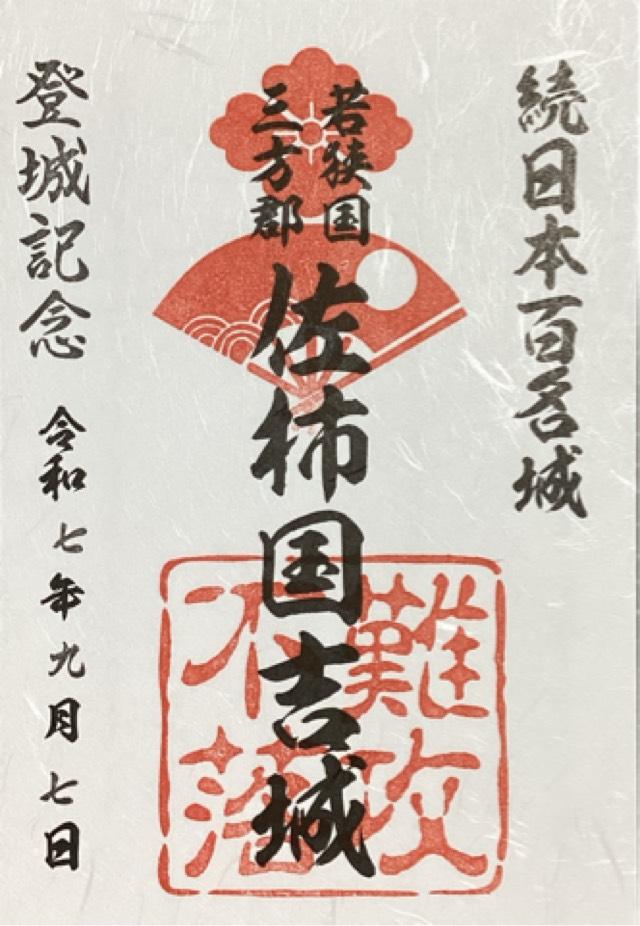 続日本百名城
若狭国
三方郡
佐柿国吉城
難攻
不落
登城記念 令和七年九月七日